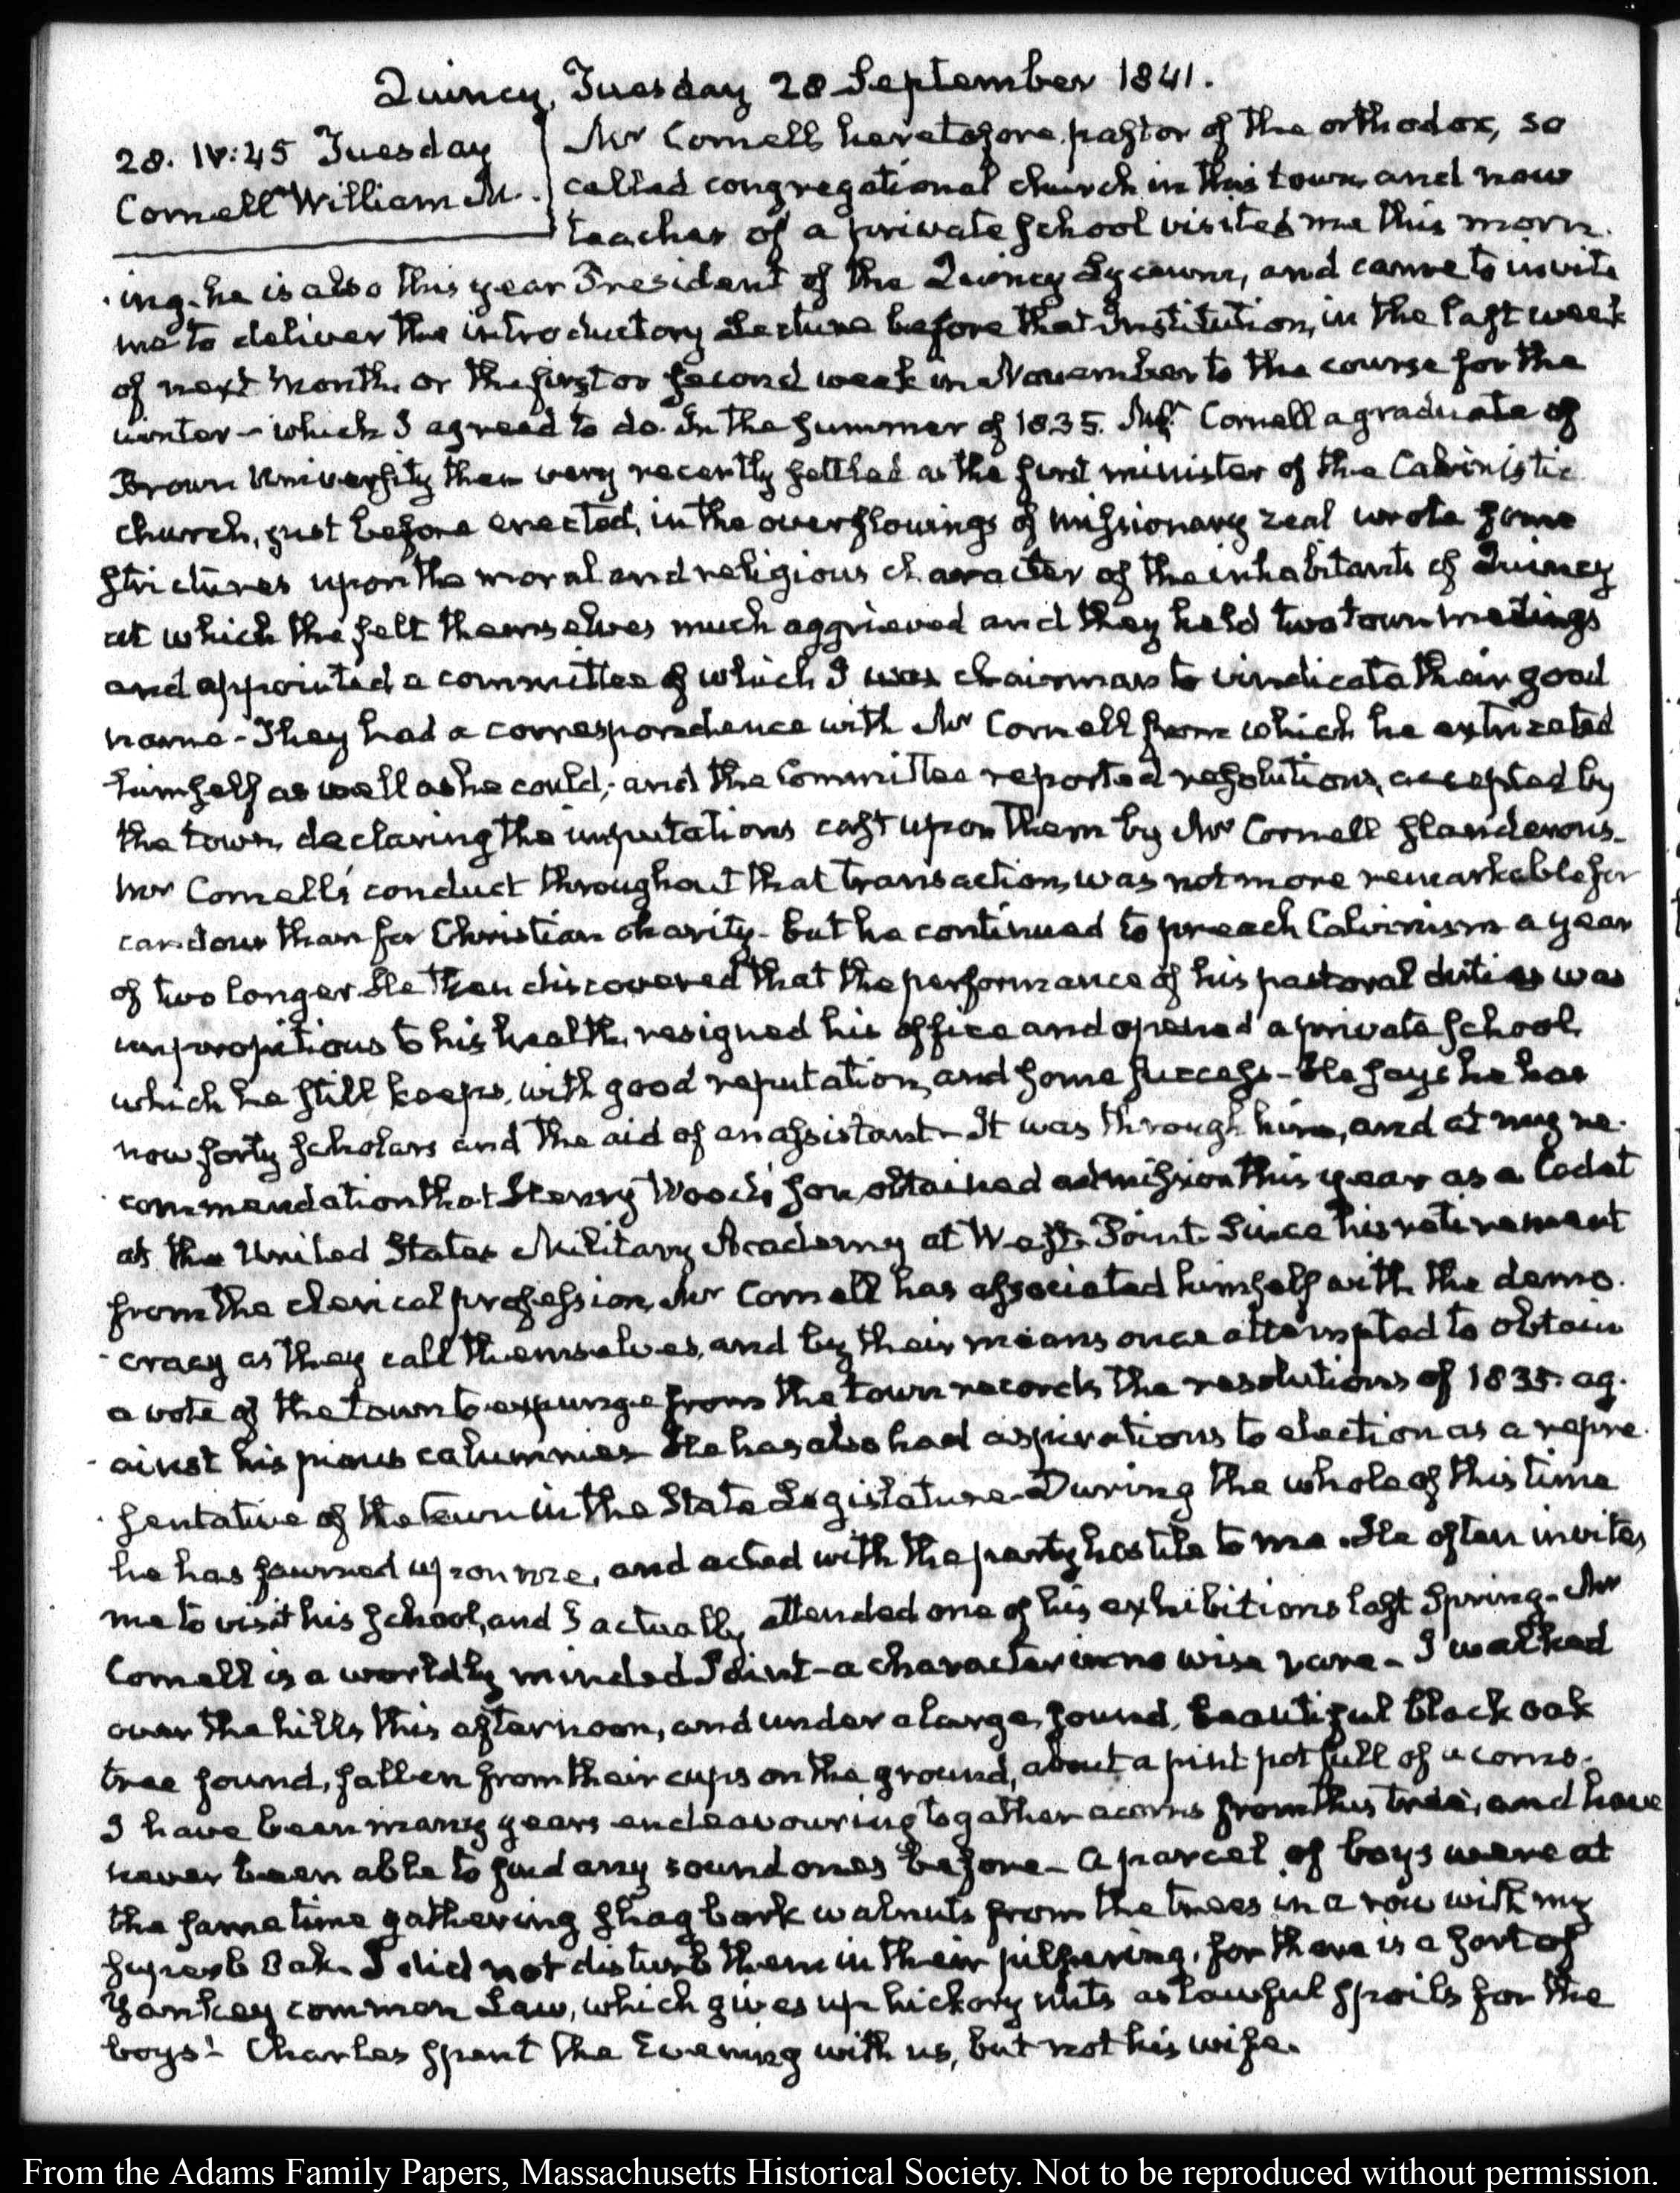 Quincy, Tuesday 28 September 1841.
28. IV:45 Tuesday
Cornell William M.
Mr Cornell heretofore pastor of the orthodox, so
called congregational church in this town and now
teacher of a private school visited me this morn-
ing. he is also this year President of the Quincy Lyceum, and came to invite
me to deliver the introductory Lecture before that Institution, in the last week
of next month or the first or second week in November to the course for the
winter - which I agreed to do. In the summer of 1835. Mr Cornell a graduate of
Brown University then very recently settled as the first minister of the Calvinistic
church, just before erected, in the overflowings of missionary zeal wrote some
strictures upon the moral and religious character of the inhabitants of Quincy
at which the felt themselves much aggrieved and they held two town meetings
and appointed a committee of which I was chairman to vindicate their good
name - They had a correspondence with Mr Cornell from which he extricated
himself as well as he could; and the Committee reported resolutions, accepted by
the town, declaring the imputations cast upon them by Mr Cornell slanderous.
Mr Cornell's conduct throughout that transaction, was not more remarkable for
candour than for Christian charity - but he continued to preach Calvinism a year
of two longer He then discovered that the performance of his pastoral duties was
unpropitious to his health, resigned his office and opened a private school,
which he still keeps, with good reputation, and some success - He says he has
now forty scholars and the aid of an assistant - It was through him, and at my re-
commendation that Henry Wood's son, obtained admission this year as a Cadet
at the United States Military Academy at West-Point. Since his retirement
from the clerical profession, Mr Cornell has associated himself with the demo-
cracy as they call themselves, and by their means once attempted to obtain
a vote of the town to expunge from the town records the resolutions of 1835. ag-
ainst his pious calumnies He has also had aspirations to election as a repre-
sentative of the town in the State Legislature - During the whole of this time
he has fawned upon me, and acted with the party hostile to me. He often invites
me to visit his school, and I actually attended one of his exhibitions last Spring - Mr
Cornell is a worldly minded Saint - a character in no wise rare - I walked
over the hills this afternoon, and under a large, sound, beautiful black oak
tree found, fallen from their cups on the ground, about a pint pot full of acorns.
I have been many years endeavouring to gather acorns from this tree, and have
never been able to find any sound ones before - A parcel of boys were at
the same time gathering shagbark walnuts from the trees in a row with my
superb Oak. I did not disturb them in their pilfering, for there is a sort of
Yankey common Law, which gives up hickory nuts as lawful spoils for the
boys - Charles spent the Evening with us, but not his wife.
From the Adams Family Papers, Massachusetts Historical Society. Not to be reproduced without permission.